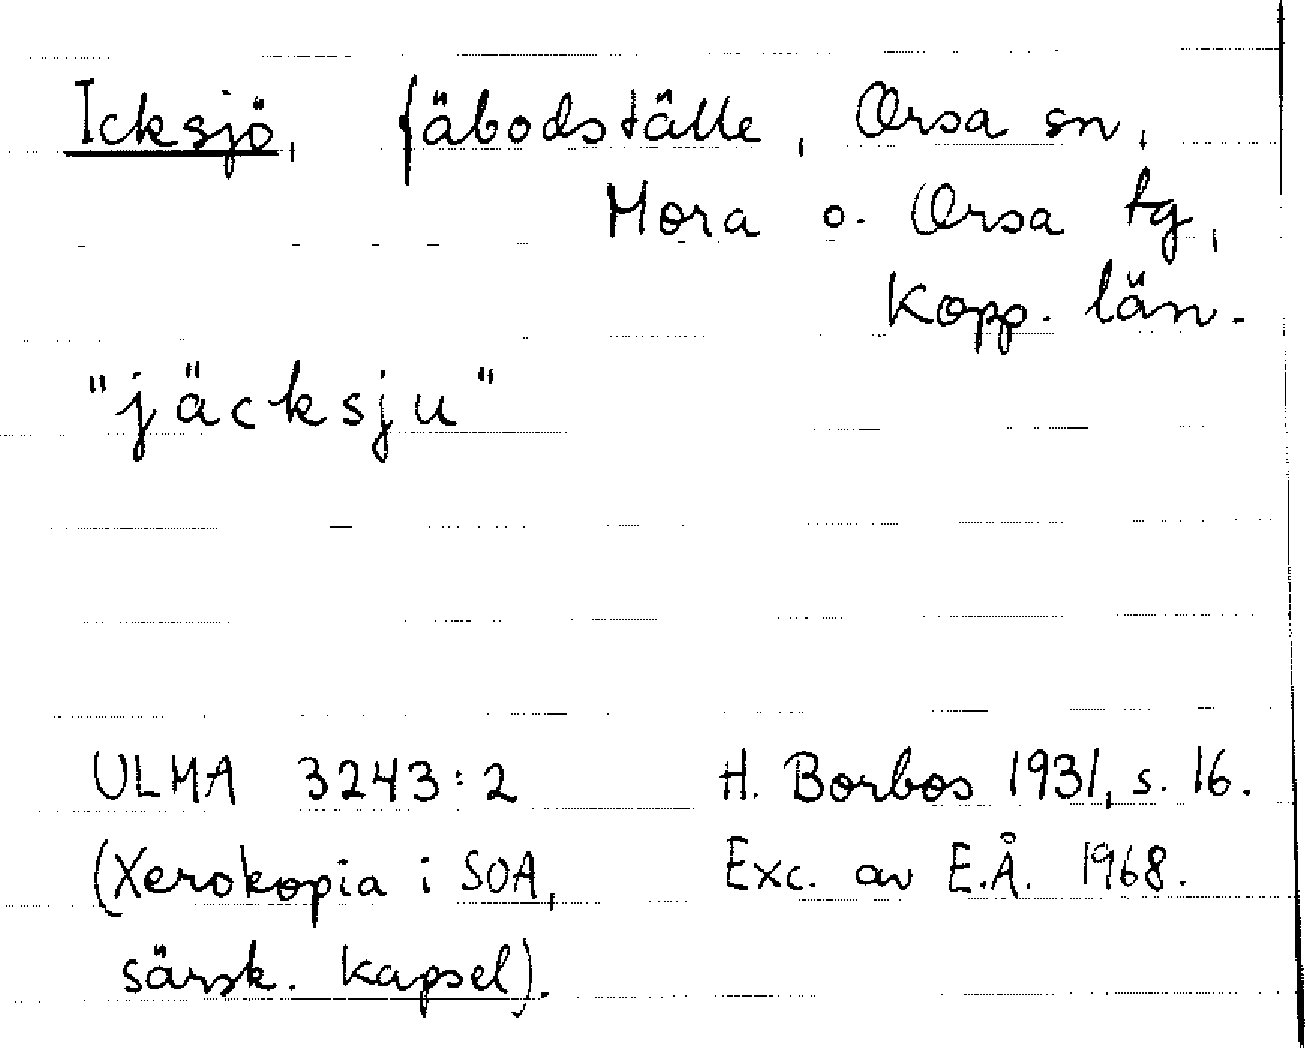 Icksjö, fäbodställe, Orsa sn,
Mora o. Orsa tg,
Kopp. län.
"jäcksju"
ULMA 3243:2 H. Borbos 1931, s. 16.
(Xerokopia i SOA, Exc. av E.Å. 1968.
särsk. kapsel).